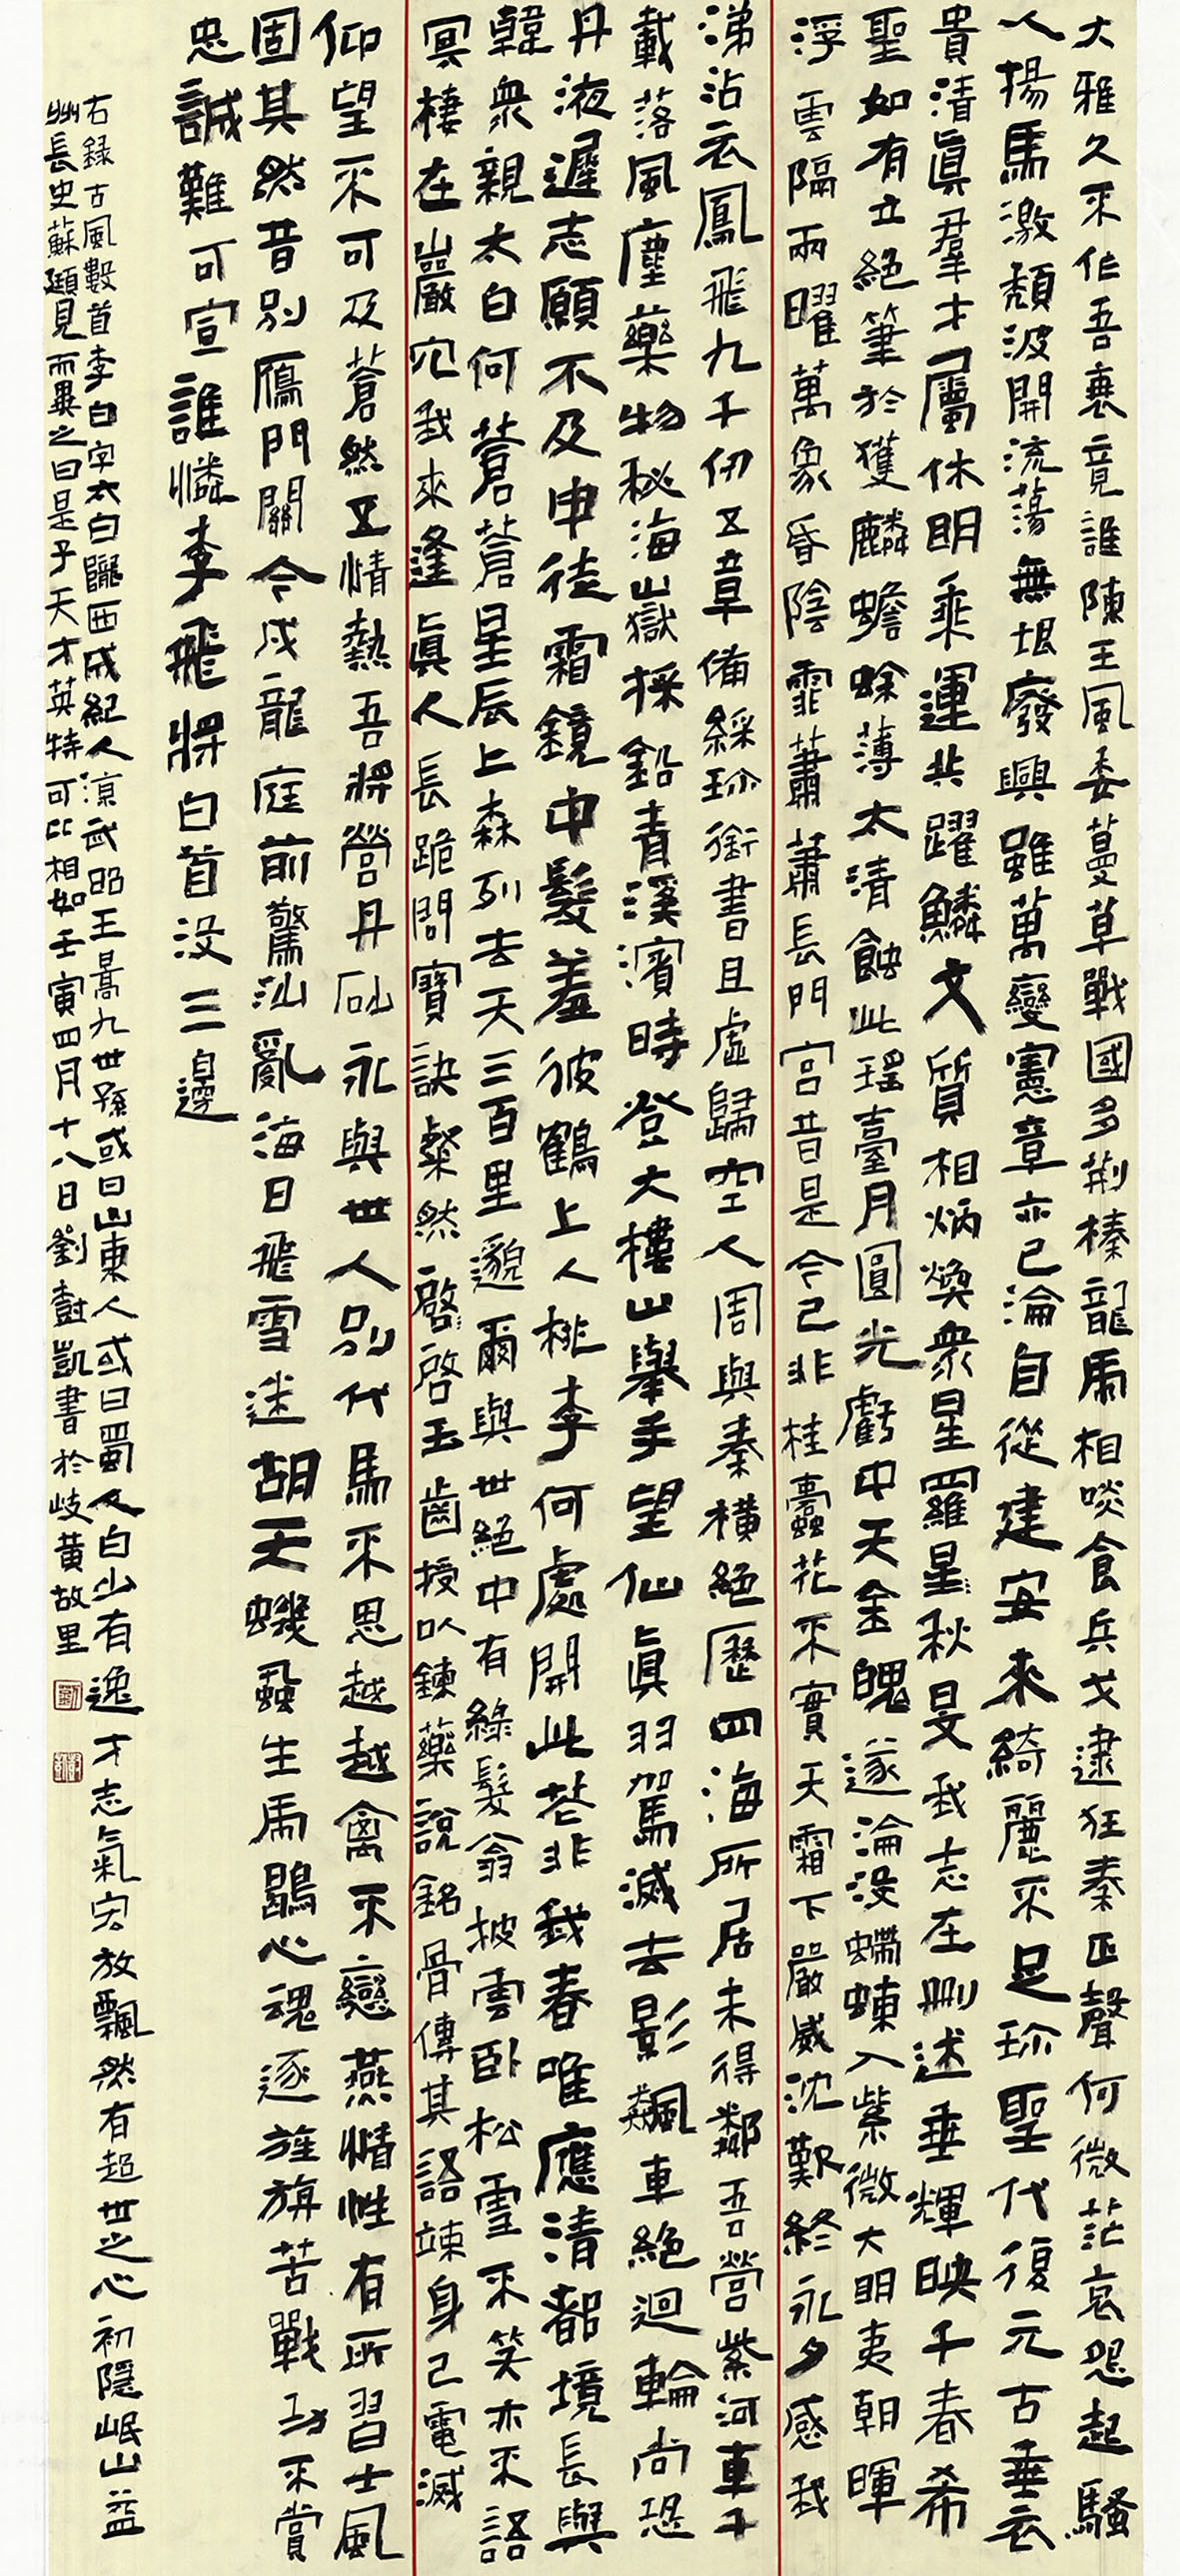 大雅久不作吾衰竟誰陳王風委蔓草戰國多荆榛龍虎相啖食兵戈逮狂秦正聲何微茫哀怨起騷
人揚馬激頹波開流蕩無垠廢興雖萬變憲章亦已淪自從建安來綺麗不足珍聖代復元古垂衣
貴清眞羣才屬休明乘運共躍鱗文質相炳煥衆星羅星秋旻我志在刪述垂輝映千春希
聖如有立絕筆於獲麟蟾蜍薄太清蝕此瑤臺月圓光虧中天金魄遂淪没螮蝀入紫微大明夷朝暉
浮雲隔兩曜萬象昏陰霏蕭蕭長門宮昔是今已非桂蠹花不實天霜下嚴威沈歎終永夕感我
涕沾衣鳳飛九千仞五章備綵珍銜書且虛歸空入周與秦橫絕歷四海所居未得鄰吾營紫河車千
載落風塵藥物秘海嶽採鉛青溪濱時登大樓山舉手望仙眞羽駕滅去影飆車絕迴輪尚恐
丹液遲志願不及申徒霜鏡中髮羞彼鶴上人桃李何處開此花非我春唯應清都境長與
韓衆親太白何蒼蒼星辰上森列去天三百里邈爾與世絕中有綠髮翁披雲卧松雪不笑亦不語
冥棲在巖穴我來逢眞人長跪問寶訣粲然啓啓玉齒授以鍊藥說銘骨傳其語竦身已電滅
仰望不可及蒼然五情熱吾將營丹砂永與世人別代馬不思越越禽不戀燕情性有所習土風
固其然昔別雁門關今戍龍庭前驚沙亂海日飛雪迷胡天蟣蝨生虎鶡心魂逐旌旃苦戰功不賞
忠誠難可宣誰憐李飛將白首没三邊
右錄古風數首李白字太白隴西成紀人涼武昭王暠九世孫或曰山東人或曰蜀人白少有逸才志氣宏放飄然有超世之心初隱岷山益
州長史蘇頲見而異之曰是子天才英特可比相如壬寅四月十八日劉尌凱書於岐黃故里